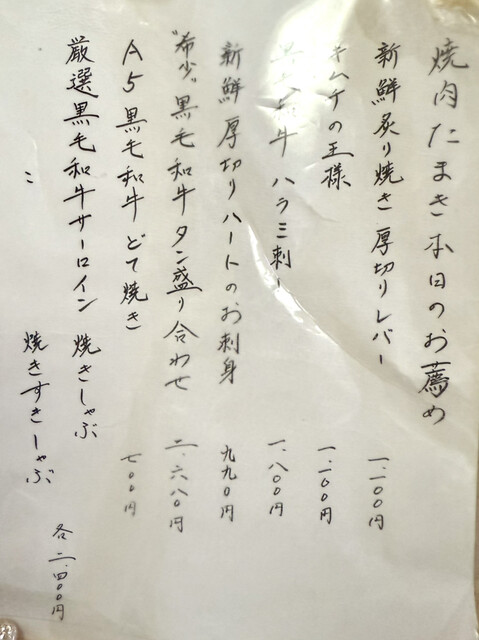 焼肉たまき本日のお薦め
新鮮炙り焼き厚切りレバー 一、一〇〇円
キムチの王様 一、一〇〇円
牛ハラミ刺し 一、八〇〇円
新鮮厚切りハートのお刺身 九九〇円
"希少"黒毛和牛タン盛り合わせ 二、六八〇円
A5黒毛和牛どて焼き 七〇〇円
厳選黒毛和牛サーロイン 焼きしゃぶ
〃 焼きすきしゃぶ
各二、四〇〇円